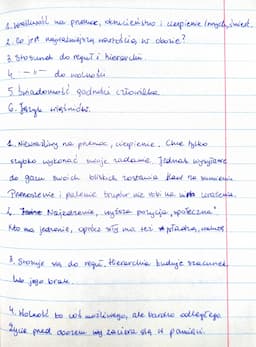 1. Wrażliwość na przemoc, okrucieństwo i cierpienie innych, śmierć.
2. Co jest najważniejszą wartością w obozie?
3. Stosunek do reguł i hierarchii.
4. -"- do wolności
5. Świadomość godności człowieka
6. Język więźniów.
1. Niewrażliwy na przemoc, cierpienie. Chce tylko
szybko wykonać swoje zadanie. Jednak wysyłanie
do gazu swoich bliskich zostawia na sumieniu.
Przenoszenie i palenie trupów nie robi na wrażenia.
2. Najedzenie, wyższa pozycja "społeczna"
Kto ma jedzenie, oprócz siły ma też władzę,
3. Stosuje się do reguł, hierarchia buduje szacunek
lub jego brak.
4. Wolność to coś możliwego, ale bardzo odległego.
Życie przed obozem zaciera się w pamięci.